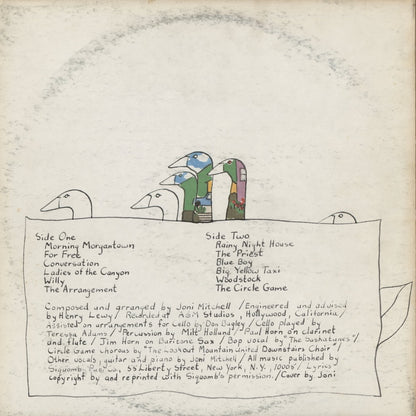 Side One
Morning Morgantown
For Free
Conversation
Ladies of the Canyon
Willy
The Arrangement
Side Two
Rainy Night House
The Priest
Blue Boy
Big Yellow Taxi
Woodstock
The Circle Game
Composed and arranged by Joni Mitchell / Engineered and advised
by Henry Lewy / Recorded at A&M Studios, Hollywood, California /
Assisted on arrangements for Cello by Don Bagley / Cello played by
Teressa Adams / Percussion by Milt Holland / Paul Horn on clarinet
and flute / Jim Horn on Baritone Sax / Bop vocal by "The Saskatunes" /
Circle Game chorus by "The Lookout Mountain United Downstairs Choir" /
Other vocals, guitar and piano by Joni Mitchell / All music published by
Siquomb Pub. Co., 55 Liberty Street, New York, N.Y., 10005 / Lyrics
copyright by and reprinted with Siquomb's permission. / Cover by Joni